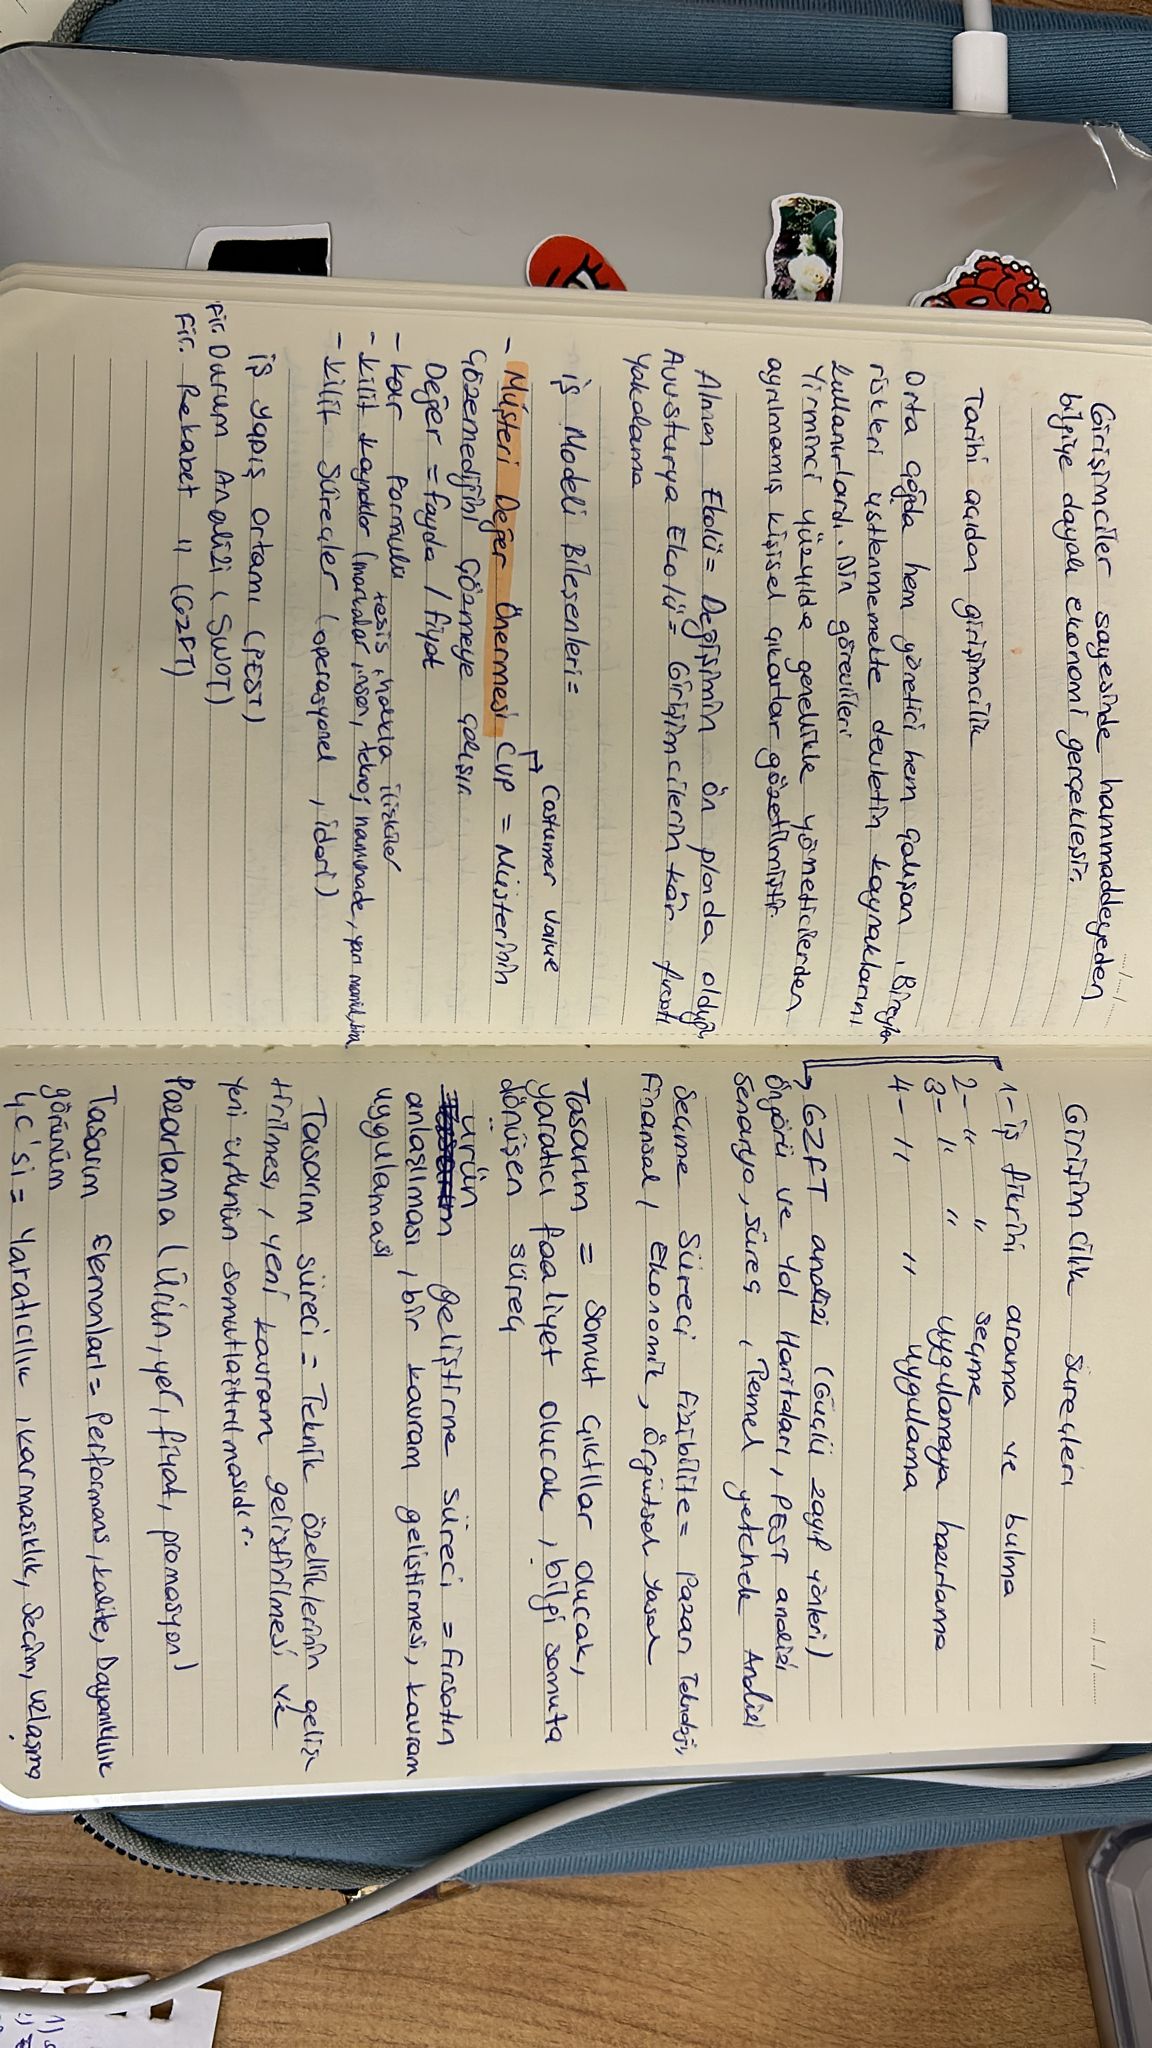 Girişimciler sayesinde hammaddeyeden
bilgiye dayalı ekonomi gerçekleşir.
Tarihi açıdan girişimcilik
Orta çağda hem yönetici hem çalışan. Bireyler
riskleri üstlenmemekte devletin kaynaklarını
kullanırlardı. Din görevlileri
Yirminci yüzyılda genellikle yöneticilerden
ayrılmamış kişisel çıkarlar gözetilmiştir.
Alman Ekolü = Değişimin ön planda olduğu,
Avusturya Ekolü = Girişimcilerin kâr fırsatı
yakalama
İş Modeli Bileşenleri =
→ Costumer value
- Müşteri Değer Önermesi CVP = Müşterinin
Çözemediğini çözmeye çalışır.
Değer = fayda / fiyat
- kar formülü
tesis, halkla ilişkiler
- kilit kaynaklar (markalar, insan, teknoj, hammade, yarı mamül,
- kilit süreçler (operasyonel, idari)
iş yapış ortamı (PEST)
Fir. Durum Analizi (SWOT)
Fir. Rekabet " (GZFT)
Girişimcilik süreçleri
1- iş fikrini arama ve bulma
2- " " seçme
3- " " uygulamaya hazırlama
4- " " uygulama
→ GZFT analizi (Güçlü zayıf yönleri)
Öngörü ve Yol Haritaları, PEST analizi
Senaryo, süreç, Temel yetenek Analizi
Seçme Süreci fizibilite = Pazar, Teknoloji,
Finansal, Ekonomik, Örgütsel Yasal
Tasarım = Somut çıktılar olucak,
yaratıcı faaliyet olucak, bilgi somuta
dönüşen süreç
ürün geliştirme süreci = fırsatın
anlaşılması, bir kavram geliştirmesi, kavram
uygulaması
Tasarım süreci = Teknik özelliklerinin geliş
tirilmesi, yeni kavram geliştirilmesi ve
yeni ürünün somutlaştırılmasıdır.
Pazarlama (Ürün, yer, fiyat, promasyon)
Tasarım Elemanları = Performans, kalite, Dayanıklılık
görünüm
4C'si = Yaratıcılık, karmaşıklık, Seçim, uzlaşma